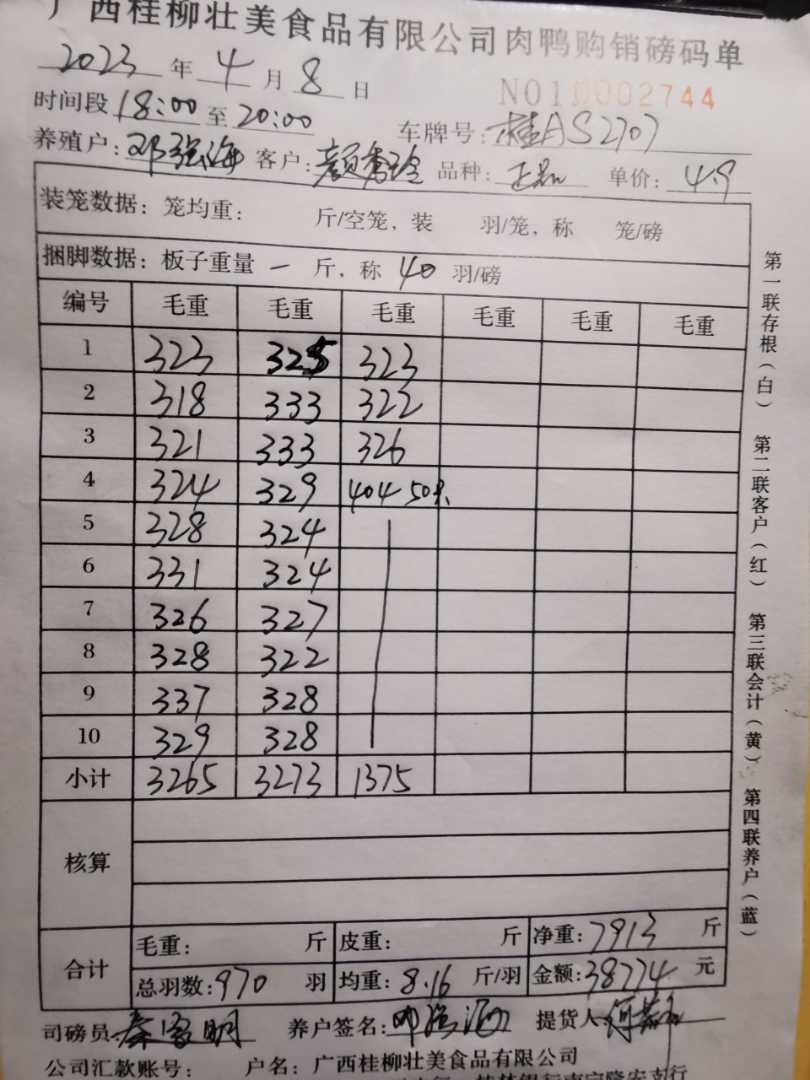 广西桂柳壮美食品有限公司肉鸭购销磅码单
2023年4月8日
NO1 0002744
时间段18:00至20:00
车牌号:桂AS2707
养殖户:邓强海 客户:颜秀玲 品种: 单价:4.9
装笼数据:笼均重: 斤/空笼,装 羽/笼,称 笼/磅
捆脚数据:板子重量 一 斤,称 40 羽/磅
编号 毛重 毛重 毛重 毛重 毛重 毛重
1 323 325 323
2 318 333 322
3 321 333 326
4 324 329 404 50只
5 328 324
6 331 324
7 326 327
8 328 322
9 337 328
10 329 328
小计 3265 3273 1375
核算
合计
毛重: 斤 皮重: 斤 净重:7913 斤
总羽数:970 羽 均重:8.16 斤/羽 金额:38774 元
司磅员 秦家明 养户签名: 提货人
公司汇款账号: 户名:广西桂柳壮美食品有限公司
第一联存根(白) 第二联客户(红) 第三联会计(黄) 第四联养户(蓝)